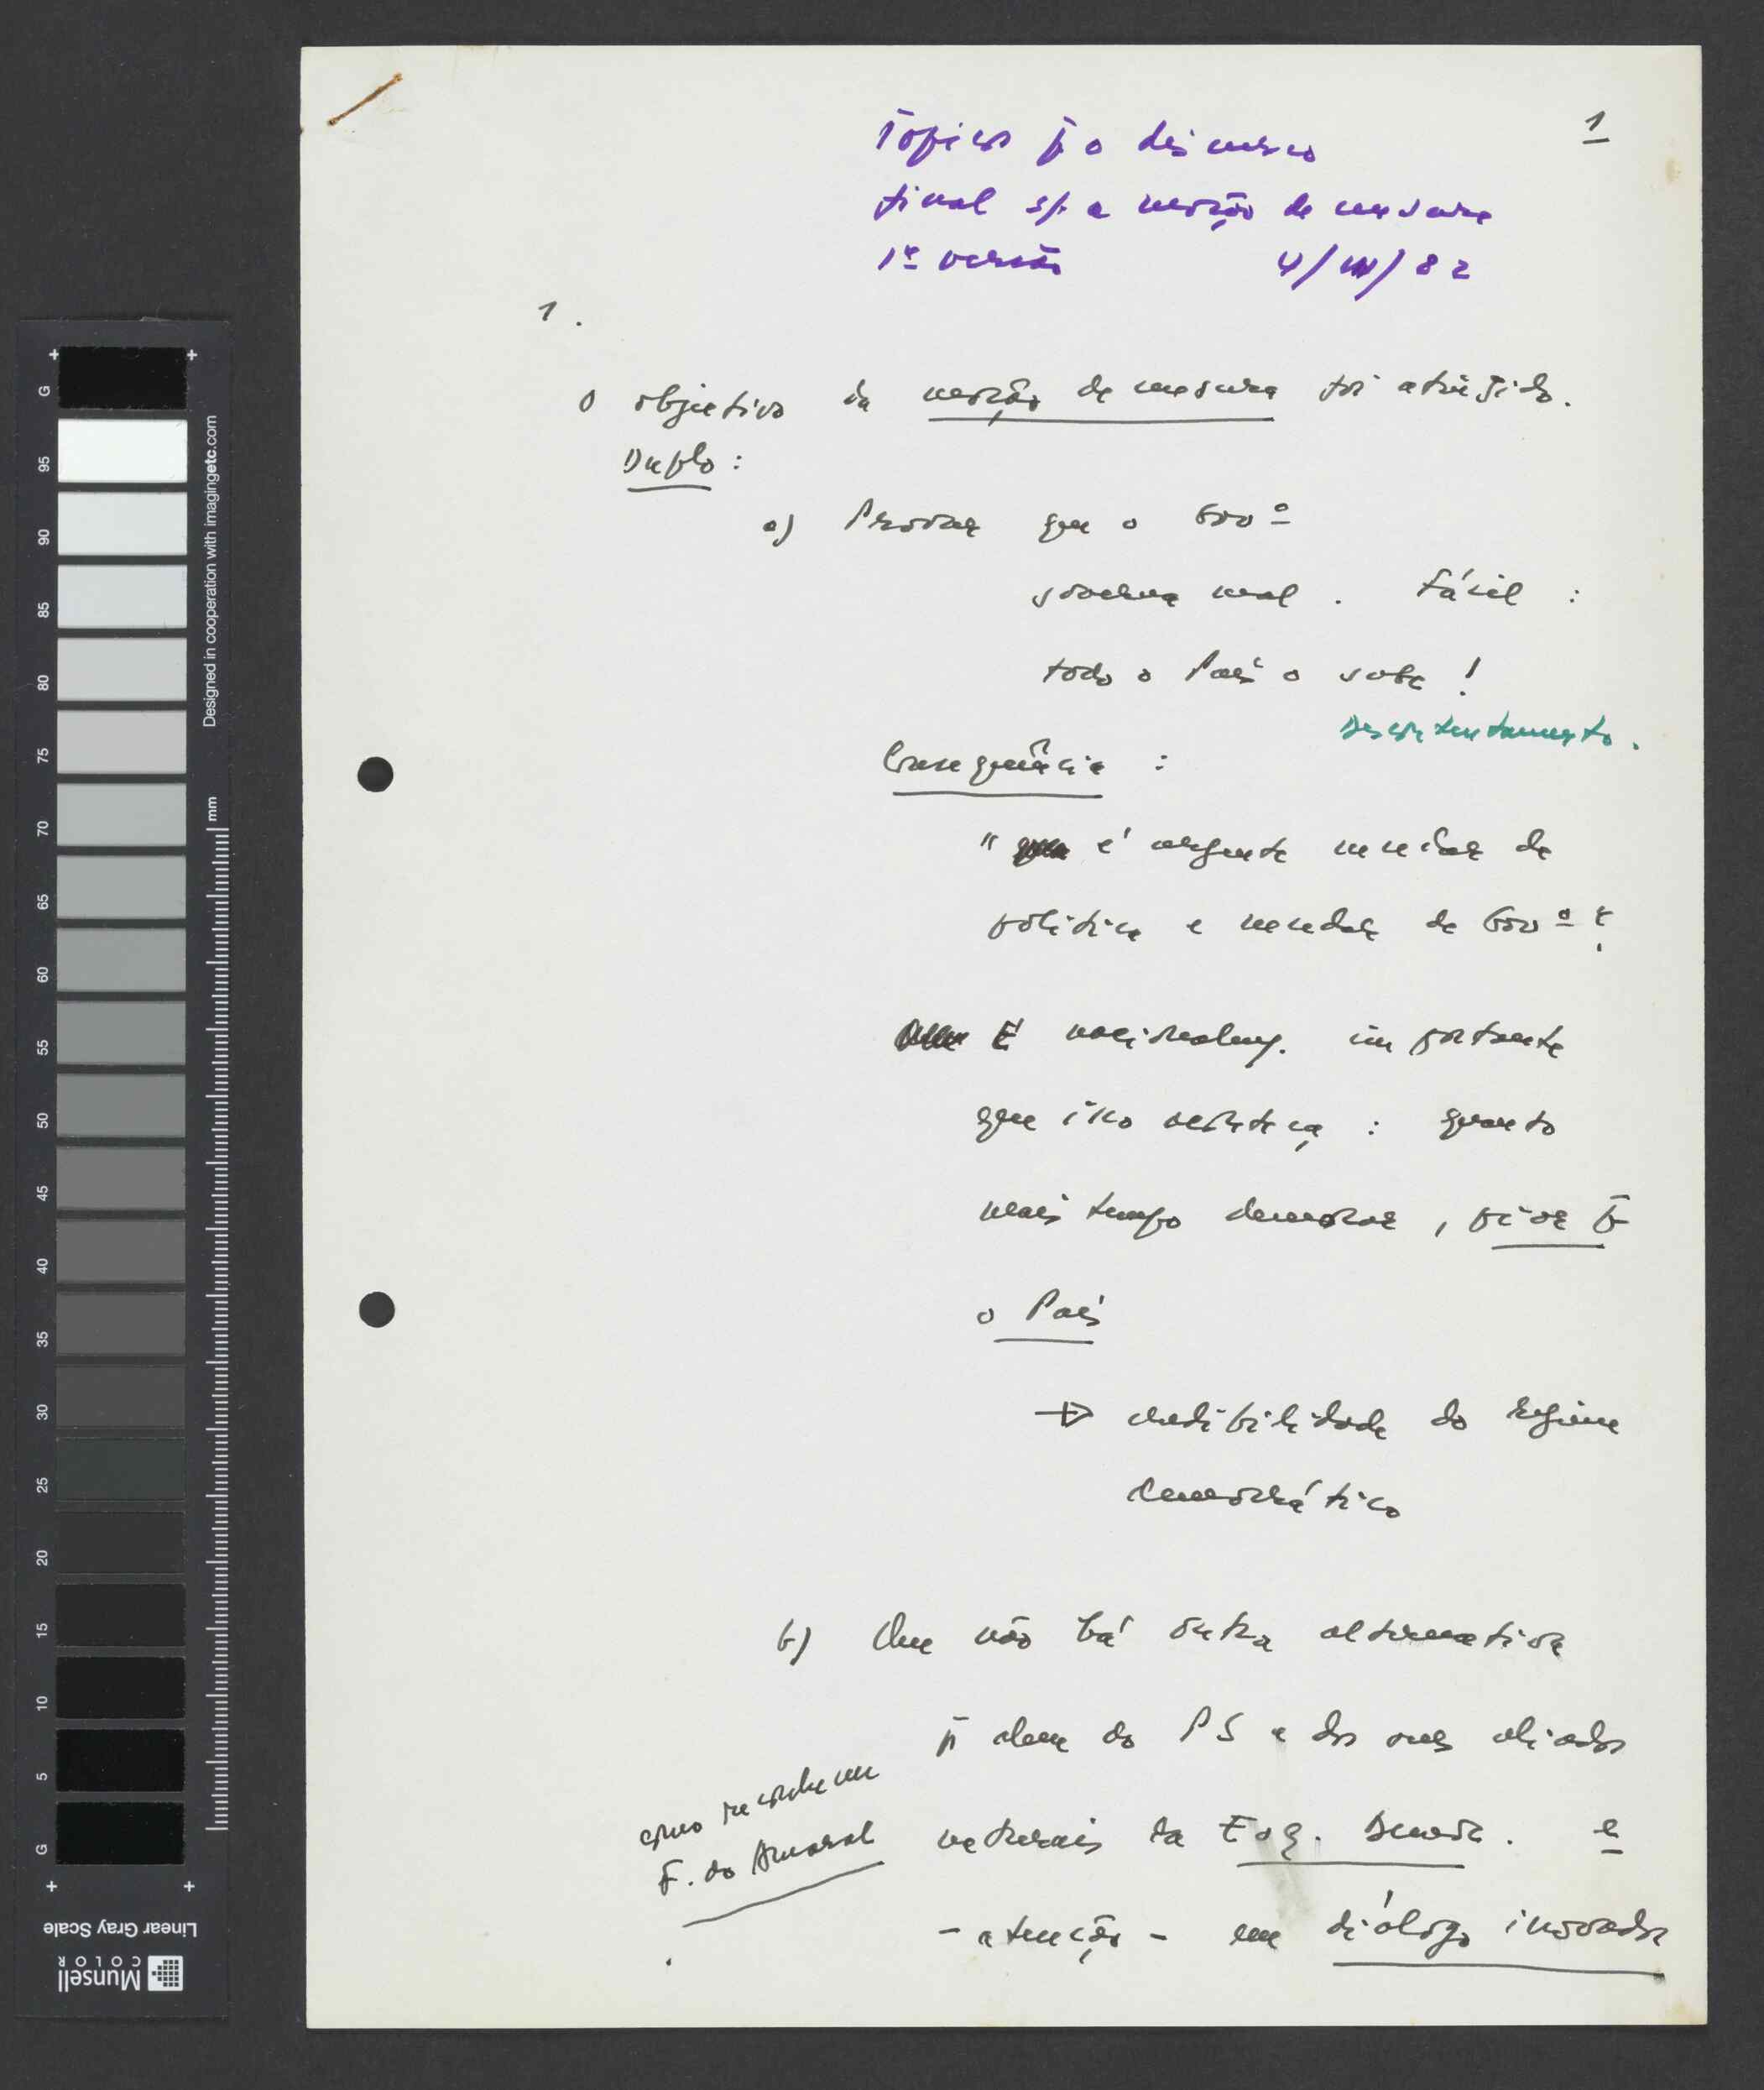 1
Tópicos p̄ o discurso
final s/. a moção de censura
1ª versão 4/III/82
1.
O objetivo da moção de censura foi atingido.
Duplo:
a) Provar que o Govº
governa mal. Fácil :
todo o País o sabe !
Descontentamento.
Consequência :
" é urgente mudar de
política e mudar de Govº
É nacionalmᵉ. importante
que isso aconteça : quanto
mais tempo demorar, pior p̄
o País
credibilidade do regime
democrático
b) Que não há outra alternativa
p̄ alem do PS e dos seus aliados
naturais da Esq. Democ. e
- atenção - em diálogo inovador
como reconheceu
F. do Amaral
G 95 90 85 80 75 70 65 60 55 50 45 40 35 30 25 20 15 10 5 G
mm
Designed in cooperation with imagingetc.com
Linear Gray Scale
Munsell
COLOR